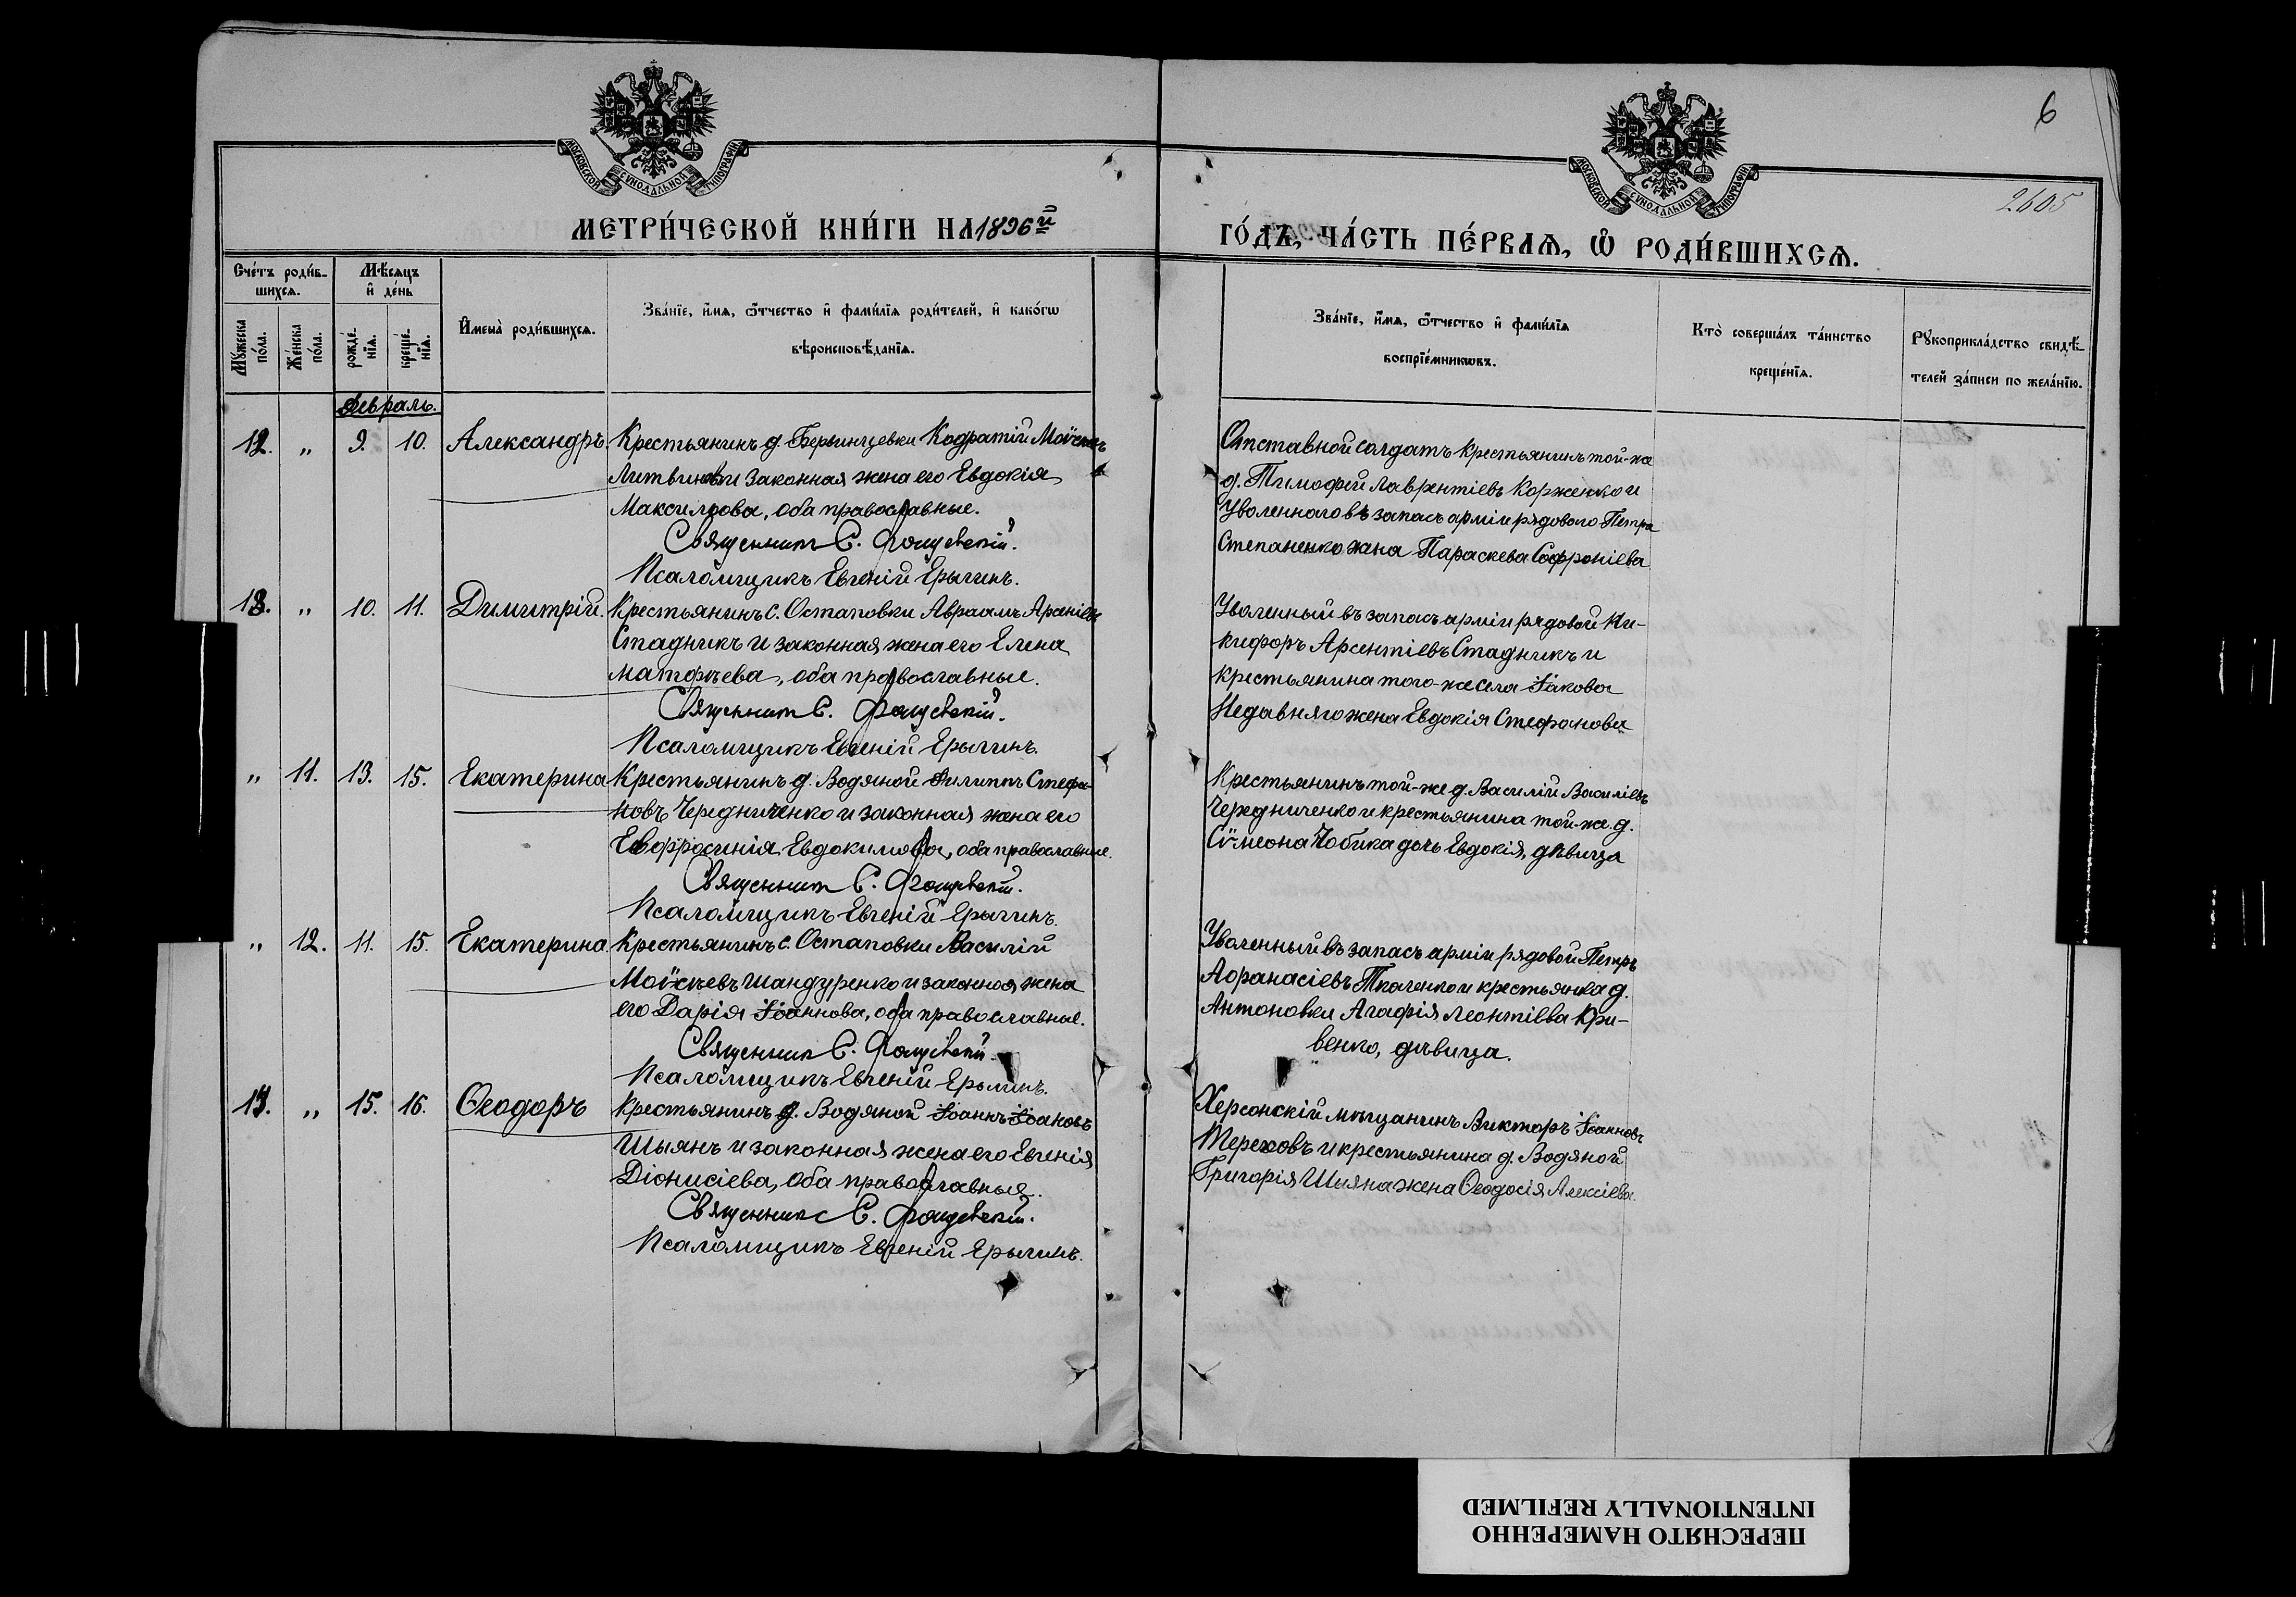 МОСКОВСКОЙ СѴНОДАЛЬНОЙ ТИПОГРАФІИ
МОСКОВСКОЙ СѴНОДАЛЬНОЙ ТИПОГРАФІИ
6
2605
МЕТРИ́ЧЕСКОЙ КНИ́ГИ НА 1896й
ГО́ДЪ, ЧА́СТЬ ПЕ́РВАѦ, Ѡ РОДИ́ВШИХСѦ.
Сче́тъ роди́в-
шихсѧ.
Мѣ́сѧцъ
и҆ де́нь
Мꙋ́жеска по́ла.
Же́нска по́ла.
рожде́-
нїѧ.
креще́-
нїѧ.
И҆мена̀ роди́вшихсѧ.
Зва́нїе, и҆́мѧ, ѻ҆́тчество и҆ фами́лїѧ роди́телей, и҆ како́гѡ
вѣроисповѣ́данїѧ.
Зва́нїе, и҆́мѧ, ѻ҆́тчество и҆ фами́лїѧ
воспрїе́мникѡвъ.
Кто̀ соверша́лъ та́инство
креще́нїѧ.
Рꙋкоприкла́дство свидѣ́-
телей за́писи по жела́нїю.
Февраль.
12. „ 9. 10. Александръ. Крестьянинъ д. Бервинцевки Кодратій Моѵсеевъ
Литвинъ и законная жена его Евдокія
Максимова, оба православные.
Священникъ С.
Псаломщикъ Евгеній Ерыгинъ.
Отставной солдатъ крестьянинъ той-же
д. Тимофей Лаврентіевъ Корженко и
Уволеннаго въ запасъ арміи рядового Петра
Степаненко жена Параскева Софроніева
13. „ 10. 11. Димитрій. Крестьянинъ с. Остаповки Авраамъ Арсеніевъ
Стадникъ и законная жена его Елена
Матфѣева, оба православные.
Священникъ С.
Псаломщикъ Евгеній Ерыгинъ.
Уволенный въ запасъ арміи рядовой Ни-
кифоръ Арсентіевъ Стадникъ и
крестьянина того-же села Іакова
Недавняго жена Евдокія Стефанова
„ 11. 13. 15. Екатерина Крестьянинъ д. Водяной Филиппъ Стефа-
новъ Чередниченко и законная жена его
Евфросинія Евдокимова, оба православные.
Священникъ С.
Псаломщикъ Евгеній Ерыгинъ.
Крестьянинъ той-же д. Василій Василіевъ
Чередниченко и крестьянина той-же д.
Сѵмеона Чобика дочь Евдокія, дѣвица
„ 12. 11. 15. Екатерина. Крестьянинъ с. Остаповки Василій
Моѵсеевъ Шандуренко и законная жена
его Дарія Іоаннова, оба православные.
Священникъ С.
Псаломщикъ Евгеній Ерыгинъ.
Уволенный въ запасъ арміи рядовой Петръ
Афанасіевъ Ткаченко и крестьянка д.
Антоновки Агафія Леонтіева Кри-
венко, дѣвица.
14. „ 15. 16. Ѳеодоръ Крестьянинъ д. Водяной Іоаннъ Іоановъ
Шыянъ и законная жена его Евгенія
Діонисіева, оба православные.
Священникъ С.
Псаломщикъ Евгеній Ерыгинъ.
Херсонскій мѣщанинъ Викторъ Іоанновъ
Тереховъ и крестьянина д. Водяной
Григорія Шыяна жена Ѳеодосія Алексіева.
ПЕРЕСНЯТО НАМЕРЕННО
INTENTIONALLY REFILMED